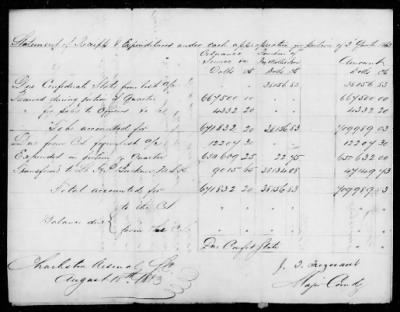 Statement of Receipts & Expenditures under each appropriation for portion of 3d Quarter 1863
Ordnance Amount
Service &c
Dolls Ct Dolls Ct Dolls Ct
Due Confederate States from last a/c 38156 83 38156 83
Received during portion of Quarter 667500 00 667500 00
" for Sales to Officers &c 4332 20 4332 20
To be accounted for 671832 20 38156 83 709989 03
Due from C.S. from last a/c 12207 30 12207 30
Expended in portion of Quarter 650609 25 22 75 650632 00
Transferred to 9015 65 38134 08 47149 73
Total accounted for 671832 20 38156 83 709989 03
to the C.S.
Balance due
from the C.S.
Due Confed State
Charleston Arsenal So Ca
August 15th 1863
J. T. Trezevant
Major Comdg